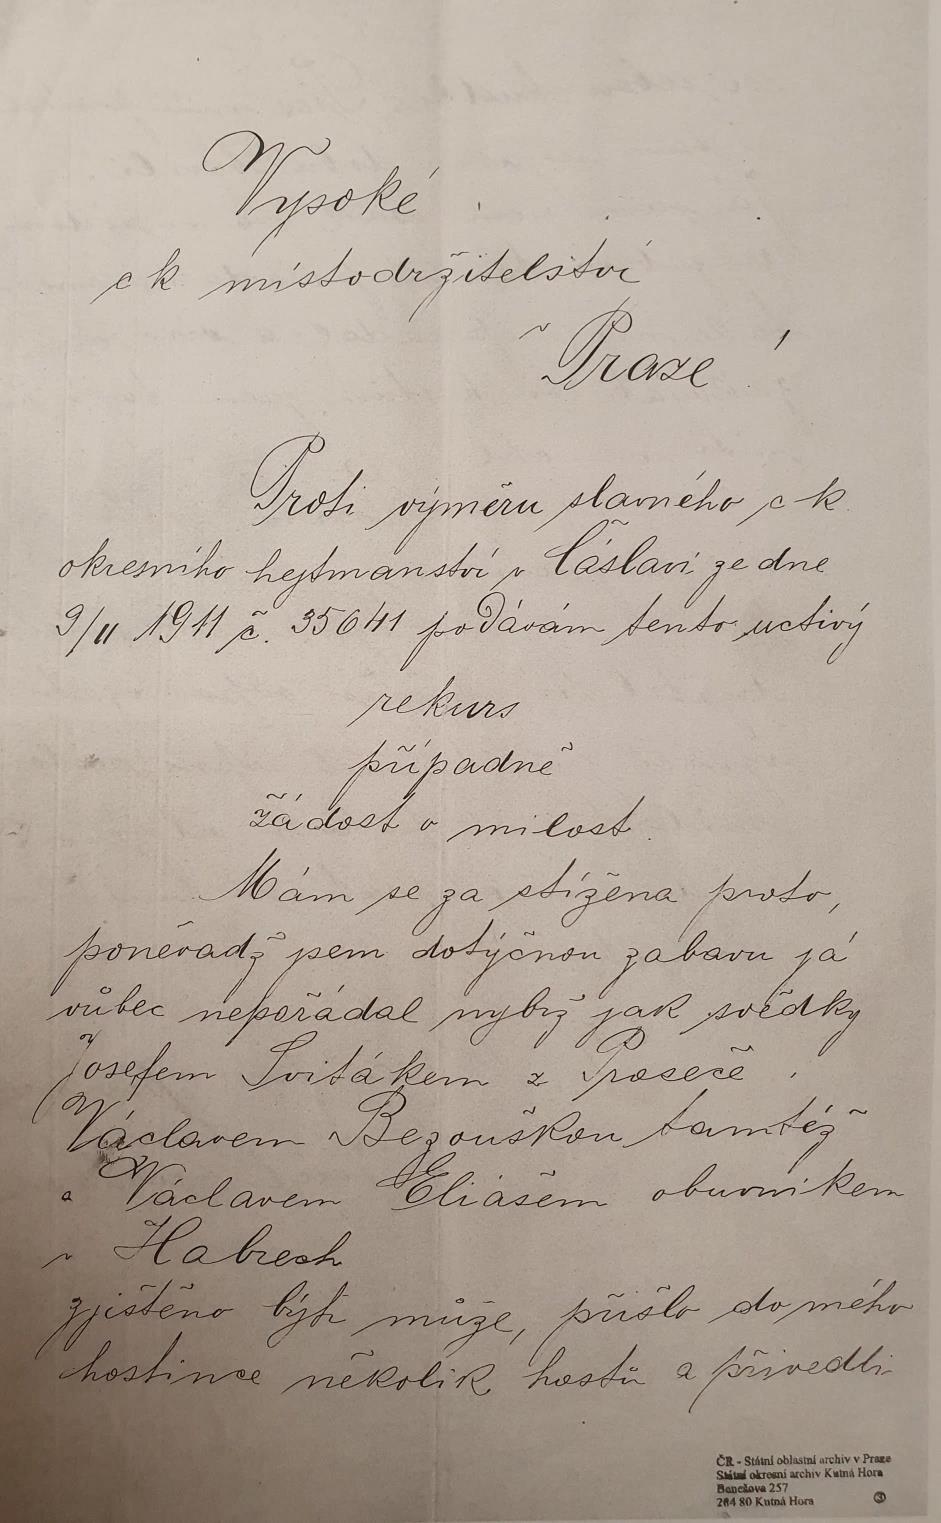 Vysoké
c k místodržitelství
v Praze!
Proti výměru slavného c k
okresního hejtmanství v Čáslavi ze dne
9/11 1911 č. 35641 podávám tento uctivý
rekurs
případně
žádost o milost.
Mám se za stížena proto,
poněvadž jsem dotýčnou zabavu já
vůbec nepořádal nybrž jak svědky
Josefem Svitákem z Proseče
Václavem Bezouškou tamtéž
a Václavem Eliášem obuvníkem
v Habrech
zjištěno býti může, přišlo do mého
hostince několik hostů a přivedli
ČR - Státní oblastní archiv v Praze
Státní okresní archiv Kutná Hora
Benešova 257
284 80 Kutná Hora
3